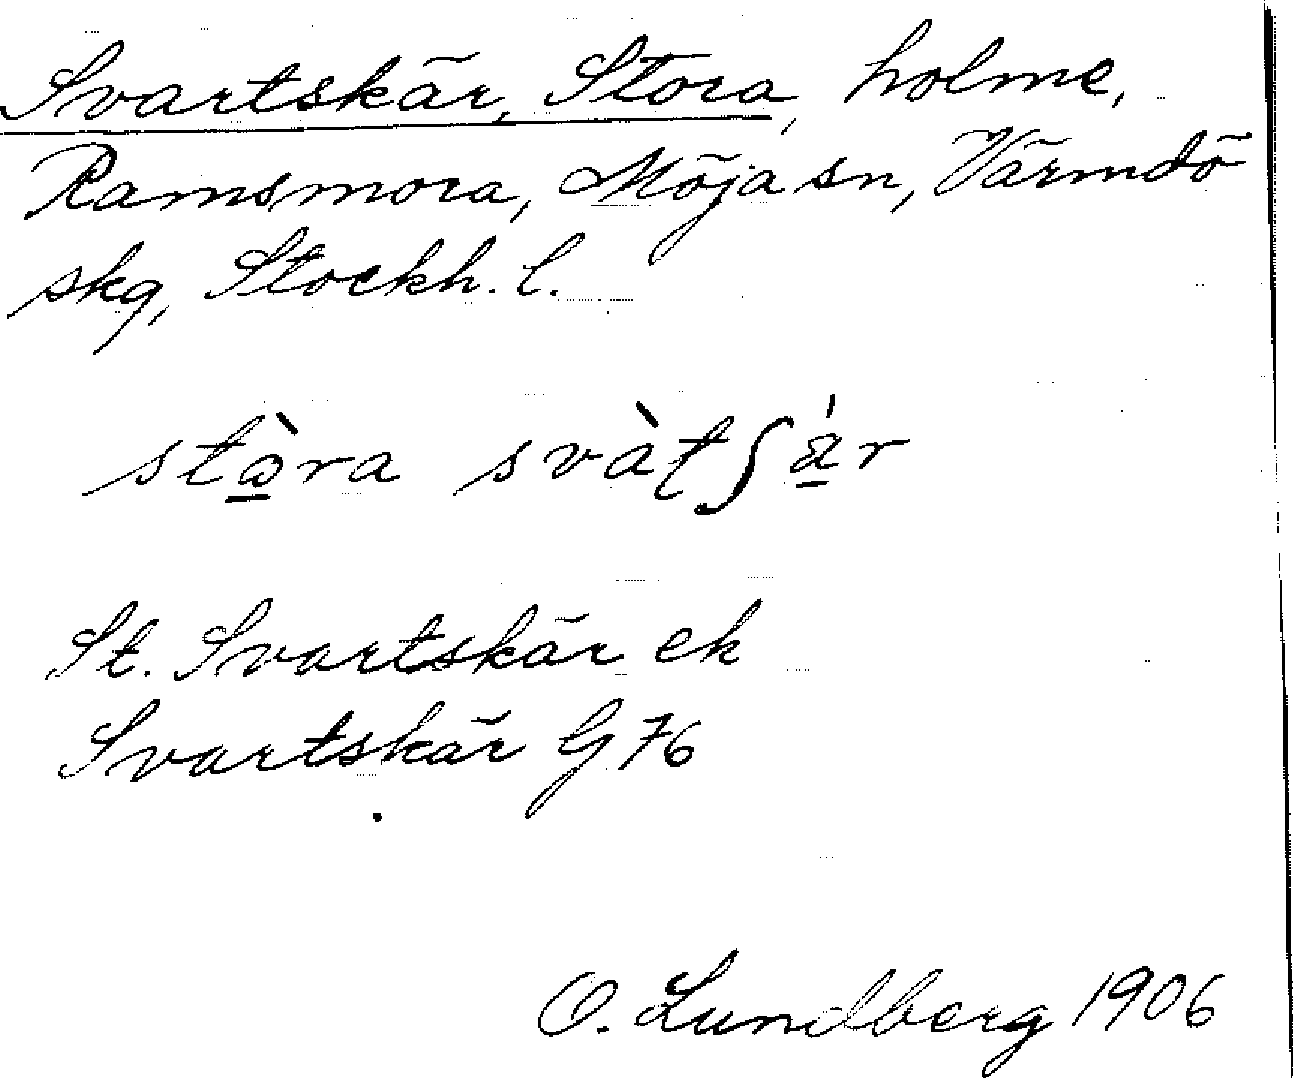 Svartskär, Stora, holme,
Ramsmora, Möja sn, Värmdö
skg, Stockh. l.
stò̱ra svàtʃä̱́r
St. Svartskär ek
Svartskär G 76
O. Lundberg 1906